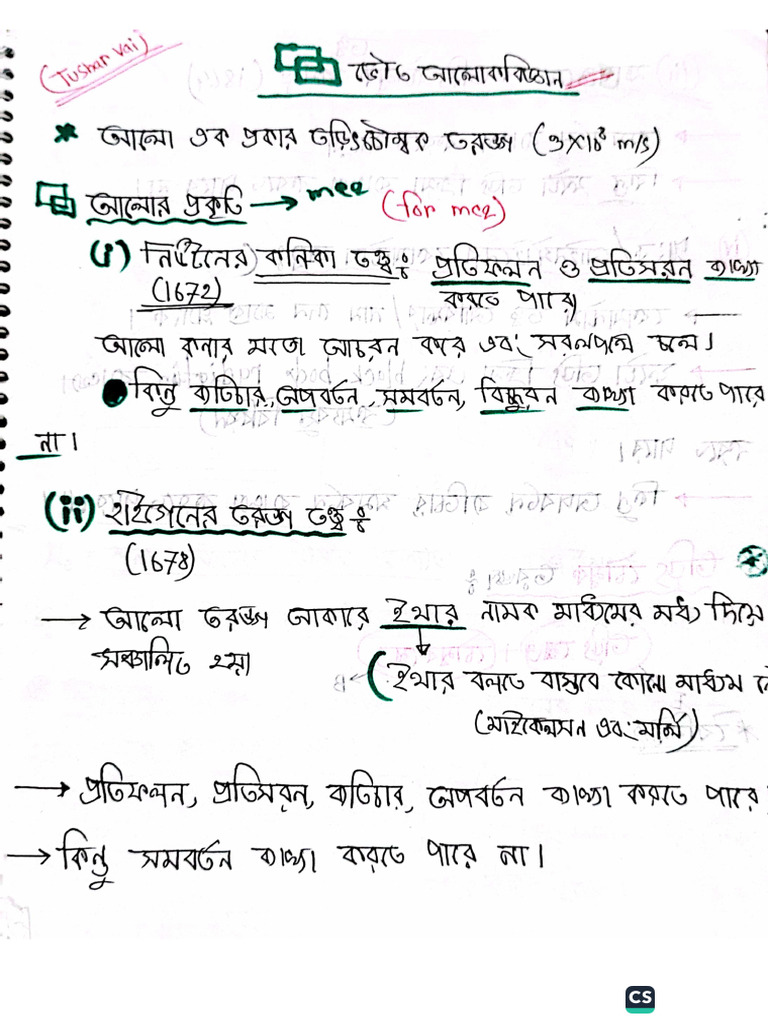 (Tushar Vai)
ভৌত আলোকবিজ্ঞান
* আলো এক প্রকার তড়িৎচৌম্বক তরঙ্গ (৩×10⁸ m/s)
আলোর প্রকৃতি → mcq (for mcq)
(i) নিউটনের কনিকা তত্ত্ব ঃ প্রতিফলন ও প্রতিসরন ব্যাখ্যা
(1672) করতে পারে।
আলো কনার মতো আচরন করে এবং সরলপথে চলে।
কিন্তু ব্যতিচার, অপবর্তন, সমবর্তন, বিচ্ছুরন ব্যাখ্যা করতে পারে
না।
(ii) হাইগেনের তরঙ্গ তত্ত্ব ঃ
(1678)
→ আলো তরঙ্গ আকারে ইথার নামক মাধ্যমের মধ্য দিয়ে
সঞ্চালিত হয়।
(ইথার বলতে বাস্তবে কোনো মাধ্যম
(মাইকেলসন এবং মর্লি)
→ প্রতিফলন, প্রতিসরন, ব্যতিচার, অপবর্তন ব্যাখ্যা করতে পারে
→ কিন্তু সমবর্তন ব্যাখ্যা করতে পারে না।
CS